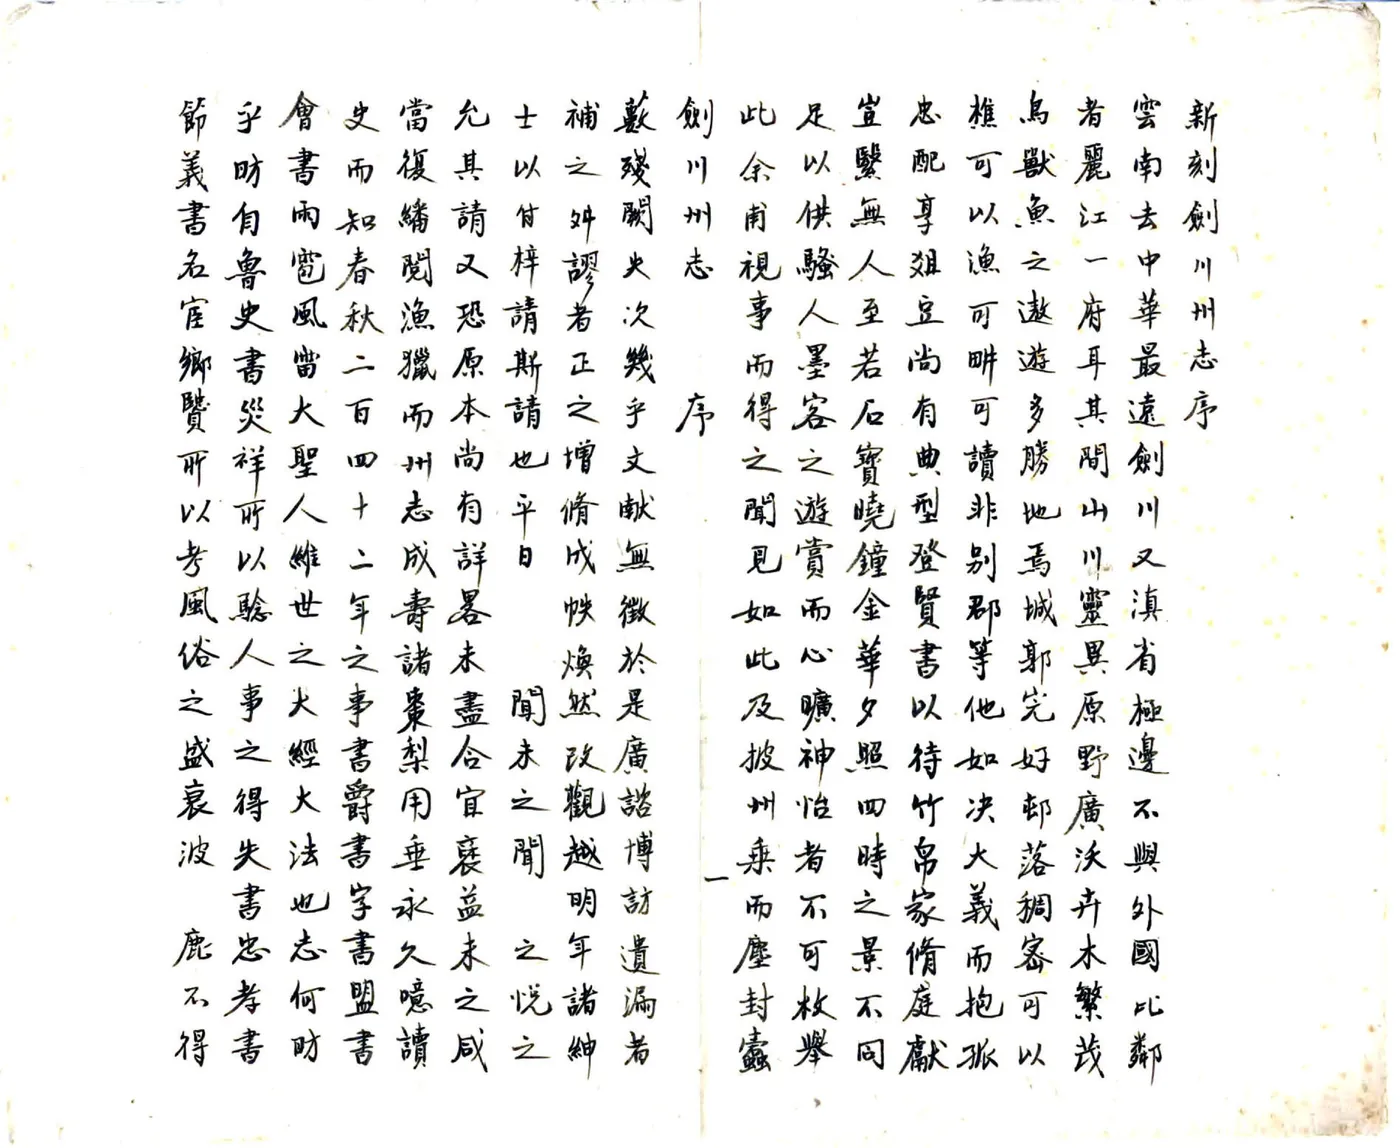 新刻劍川州志序
雲南去中華最遠劍川又滇省極邊不與外國比鄰
者麗江一府耳其間山川靈異原野廣沃卉木繁茂
鳥獸魚之遨遊多勝地焉城郭完好邨落稠密可以
樵可以漁可畊可讀非别郡等他如决大義而抱孤
忠配享爼豆尚有典型登賢書以待竹帛家脩庭獻
豈繄無人至若石寶曉鐘金華夕照四時之景不同
足以供騷人墨客之遊賞而心曠神怡者不可枚舉
此余甫視事而得之聞見如此及披州乗而塵封蠧
一
劍川州志 序
蠹殘闕失次幾乎文献無徴於是廣諮博訪遺漏者
補之舛謬者正之增脩成帙煥然改觀越明年諸紳
士以付梓請斯請也平日 聞未之聞 之悦之
允其請又恐原本尚有詳畧未盡合宜裒益未之咸
當復繙閲漁獵而州志成壽諸棗梨用垂永久噫讀
史而知春秋二百四十二年之事書爵書字書盟書
會書雨雹風雷大聖人維世之大經大法也志何昉
乎昉自魯史書災祥所以騐人事之得失書忠孝書
節義書名宦鄉賢所以考風俗之盛衰波 鹿不得